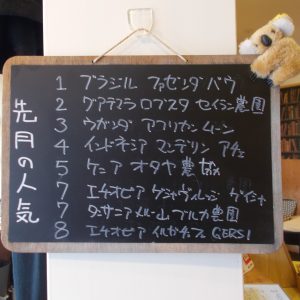 先月の人気
1 ブラジル ファゼンダ バウ
2 グアテマラ ロブスタ セイラン農園
3 ウガンダ アフリカン ムーン
4 インドネシア マンデリン アチェ
5 ケニア オタヤ 農協
7 エチオピア ゲシャヴィレッジ ゲイシャ
7 タンザニア メルー山 ブルカ農園
8 エチオピア イルガチェフェ GERSI